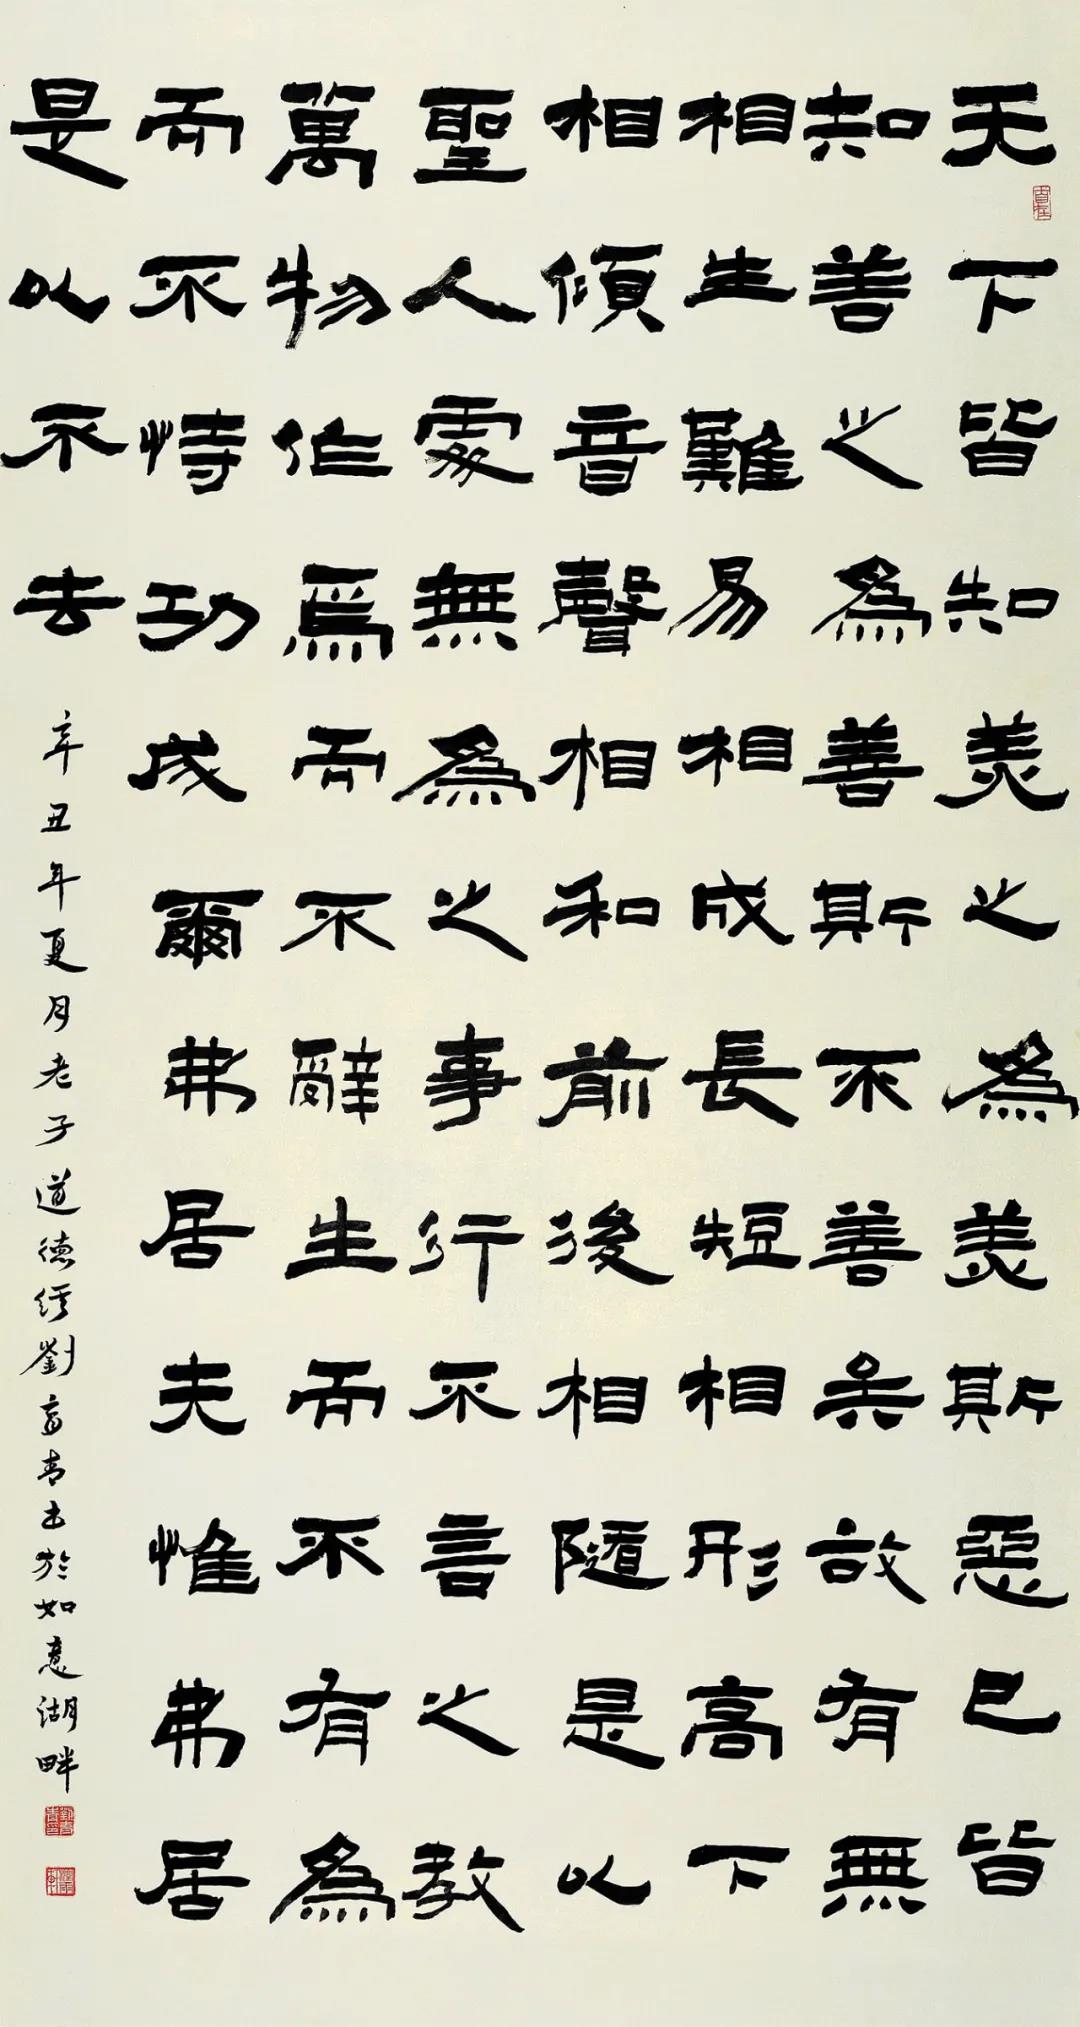 天下皆知美之為美斯惡已皆
知善之為善斯不善矣故有無
相生難易相成長短相形高下
相傾音聲相和前後相隨是以
聖人處無為之事行不言之教
萬物作焉而不辭生而不有為
而不恃功成爾弗居夫惟弗居
是以不去
辛丑年夏月老子道德經劉青書於如意湖畔